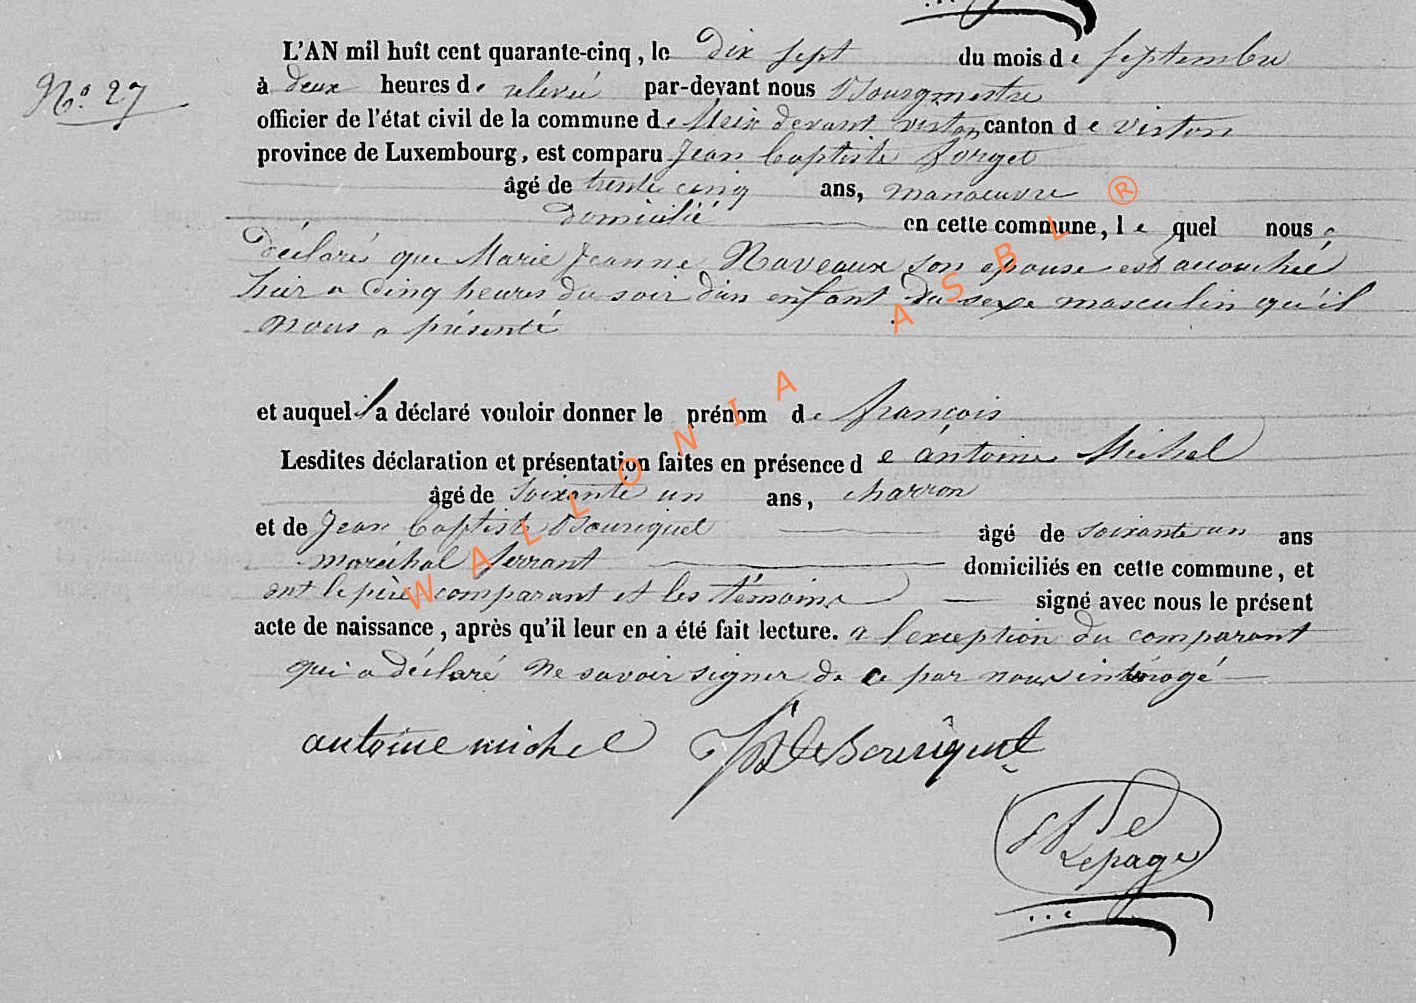 L'AN mil huit cent quarante-cinq, le dix sept du mois de septembre
N.o 27
à deux heures de relevée par-devant nous Bourgmestre
officier de l'état civil de la commune de Meix devant virton canton de virton
province de Luxembourg, est comparu Jean Baptiste forget
âgé de trente cinq ans, manoeuvre
domicilié en cette commune, le quel nous a
déclaré que Marie Jeanne Naveaux son epouse est accouchée
hier a cinq heures du soir d'un enfant du sexe masculin qu'il
nous a présenté
et auquel il a déclaré vouloir donner le prénom de françois
Lesdites déclaration et présentation faites en présence de antoine Michel
âgé de soixante un ans, charron
et de Jean Baptiste Bouriquet âgé de soixante un ans
maréchal ferrant domiciliés en cette commune, et
ont le père comparant et les témoins signé avec nous le présent
acte de naissance, après qu'il leur en a été fait lecture. a l'exception du comparant
qui a déclaré ne savoir signer de ce par nous intérogé
antoine michel
Lepage
WALLONIA ASBL ®